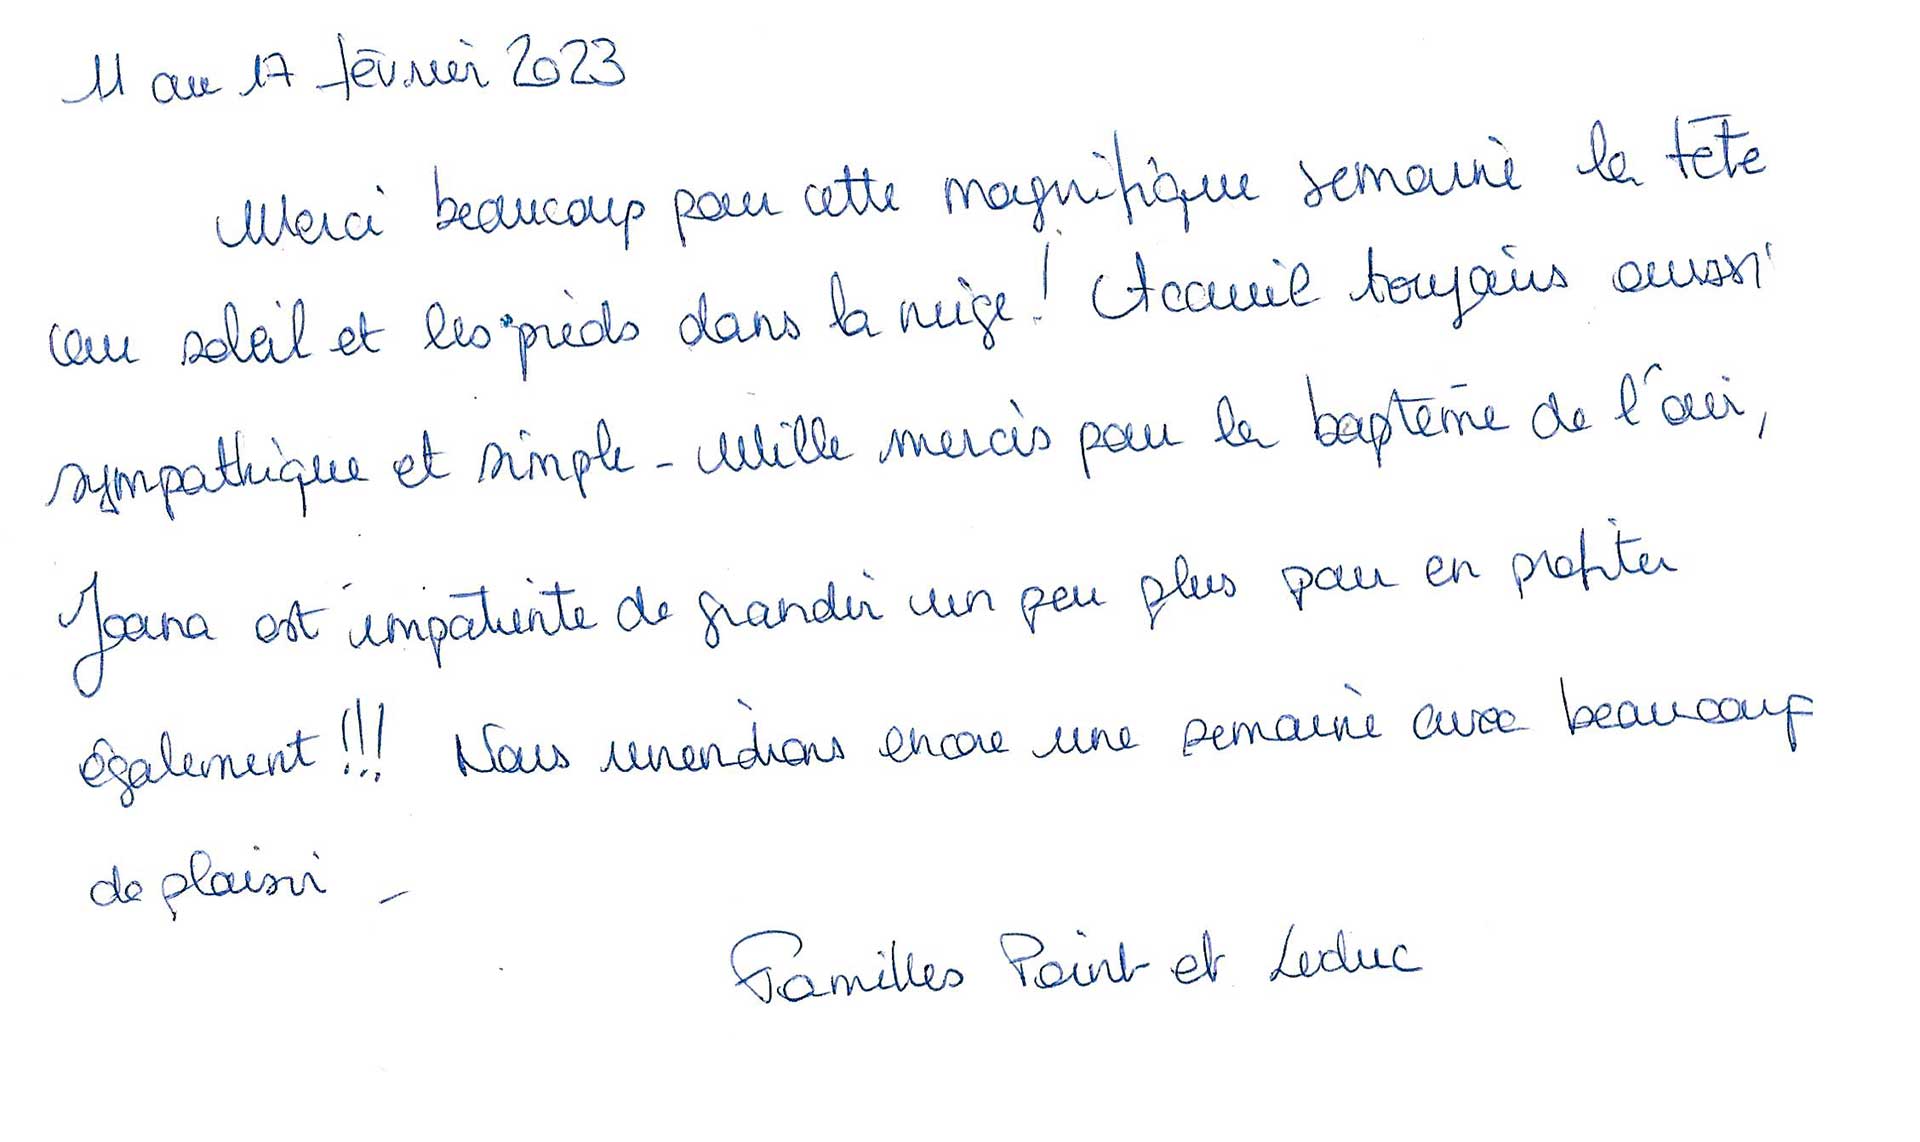 11 au 17 février 2023
Merci beaucoup pour cette magnifique semaine la tête
au soleil et les pieds dans la neige ! Accueil toujours aussi
sympathique et simple - Mille mercis pour le baptême de l'air,
Joana est impatiente de grandir un peu plus pour en profiter
également !!! Nous reviendrons encore une semaine avec beaucoup
de plaisir -
Familles Point et Leduc